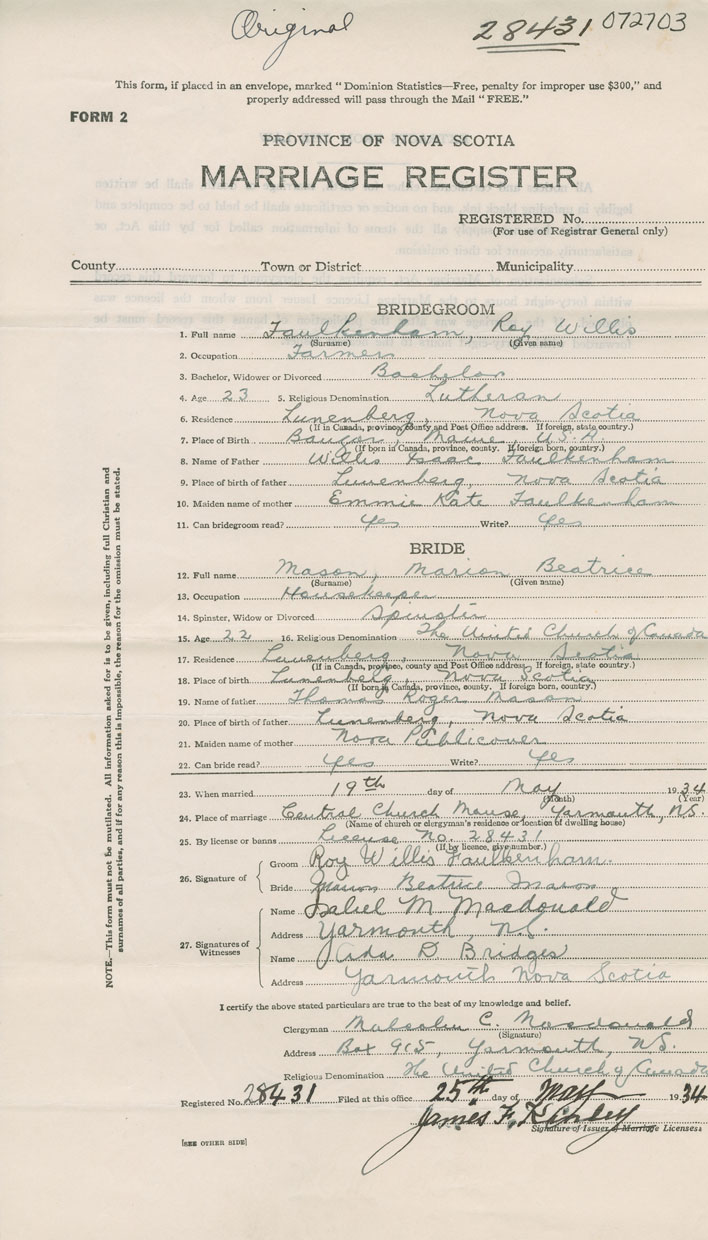 Original
28431 072703
This form, if placed in an envelope, marked "Dominion Statistics—Free, penalty for improper use $300," and
properly addressed will pass through the Mail "FREE."
FORM 2
PROVINCE OF NOVA SCOTIA
MARRIAGE REGISTER
REGISTERED No.
(For use of Registrar General only)
County Town or District Municipality
BRIDEGROOM
1. Full name Faulkenham, Roy Willis
(Surname) (Given name)
2. Occupation Farmer
3. Bachelor, Widower or Divorced Bachelor
4. Age 23 5. Religious Denomination Lutheran
6. Residence Lunenberg, Nova Scotia
(If in Canada, province, county and Post Office address. If foreign, state country.)
7. Place of Birth Bangor, Maine, U.S.A.
(If born in Canada, province, county. If foreign born, country.)
8. Name of Father Willis Isaac Faulkenham
9. Place of birth of father Lunenberg, Nova Scotia
10. Maiden name of mother Emmie Kate Faulkenham
11. Can bridegroom read? Yes Write? Yes
BRIDE
12. Full name Mason, Marion Beatrice
(Surname) (Given name)
13. Occupation Housekeeper
14. Spinster, Widow or Divorced Spinster
15. Age 22 16. Religious Denomination The United Church of Canada
17. Residence Lunenberg, Nova Scotia
(If in Canada, province, county and Post Office address. If foreign, state country.)
18. Place of birth Lunenberg, Nova Scotia
(If born in Canada, province, county. If foreign born, country.)
19. Name of father Thomas Roger Mason
20. Place of birth of father Lunenberg, Nova Scotia
21. Maiden name of mother Nora Publicover
22. Can bride read? Yes Write? Yes
23. When married 19th day of May 1934
(Month) (Year)
24. Place of marriage Central Church Manse, Yarmouth, N.S.
(Name of church or clergyman's residence or location of dwelling house)
25. By license or banns License No. 28431
(If by licence, give number.)
26. Signature of
Groom Roy Willis Faulkenham.
Bride Marion Beatrice Mason
27. Signatures of Witnesses
Name Isabel M Macdonald
Address Yarmouth, N.S.
Name Ada D Bridges
Address Yarmouth Nova Scotia
I certify the above stated particulars are true to the best of my knowledge and belief.
Clergyman Malcolm C. Macdonald
(Signature)
Address Box 915, Yarmouth, N.S.
Religious Denomination The United Church of Canada
Registered No. 28431 Filed at this office 25th day of May 1934
James F.
Signature of Issuer of Marriage Licenses
[SEE OTHER SIDE]
NOTE.—This form must not be mutilated. All information asked for is to be given, including full Christian and
surnames of all parties, and if for any reason this is impossible, the reason for the omission must be stated.